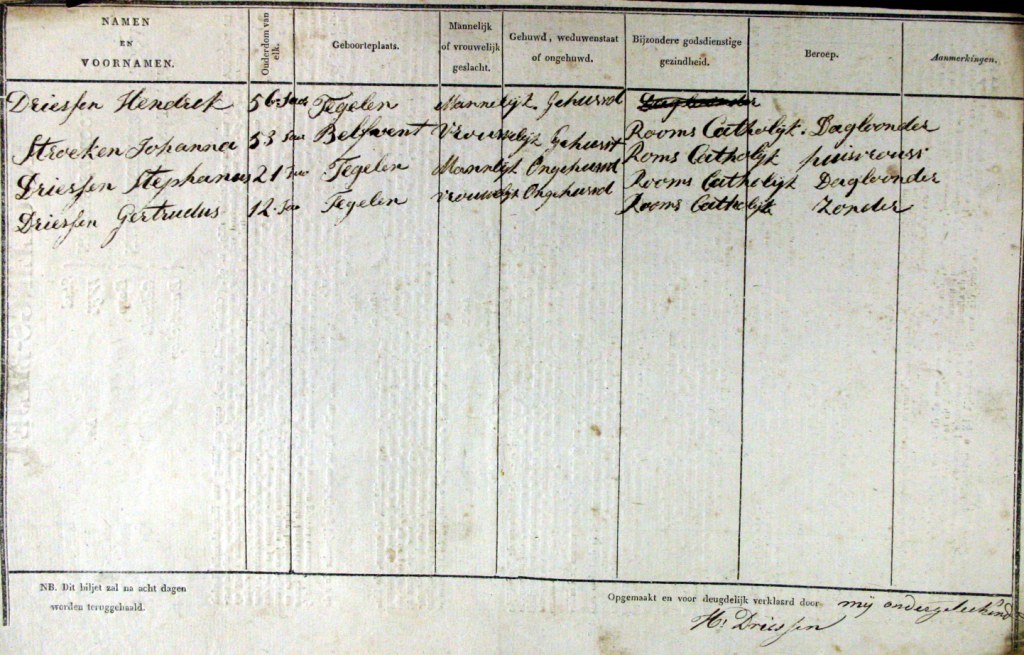 NAMEN EN VOORNAMEN. Ouderdom van elk. Geboorteplaats. Mannelijk of vrouwelijk geslacht. Gehuwd, weduwenstaat of ongehuwd. Bijzondere godsdienstige gezindheid. Beroep. Aanmerkingen.
Driessen Hendrik 56 Jaar Tegelen Mannelijk Gehuwd Dagloonder
Stroeken Johanna 53 Jaar Belfvent Vrouwelijk Gehuwt Rooms Catholijk. Dagloonder
Driessen Stephanus 21 Jaar Tegelen Mannlijk Ongehuwd Roms Catholijk huisvrouw
Driessen Gertrudus 12. Jaar Tegelen vrouwelijk Ongehuwd Rooms Catholijk Dagloonder
Rooms Catholijk Zonder
NB. Dit biljet zal na acht dagen
worden teruggehaald.
Opgemaakt en voor deugdelijk verklaard door mij ondergeteekend
H: Driessen